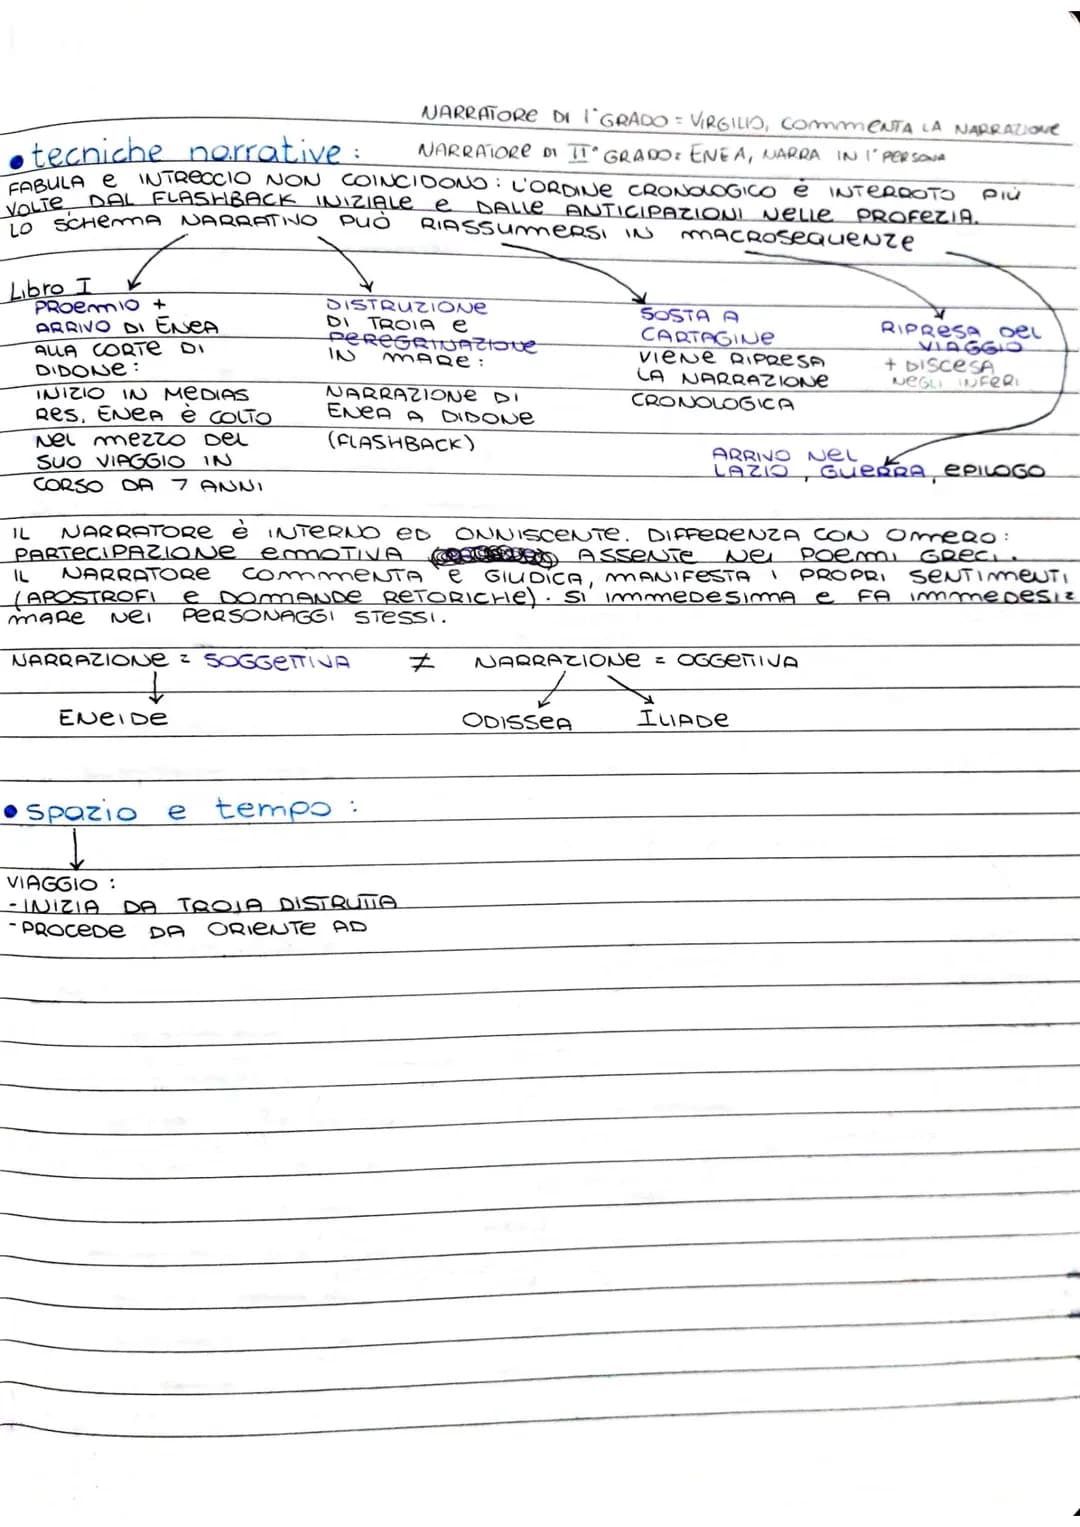 NARRATORE DI I° GRADO = VIRGILIO, COMMENTA LA NARRAZIONE
• tecniche narrative :
NARRATORE DI II° GRADO: ENEA, NARRA IN I° PERSONA
FABULA e INTRECCIO NON COINCIDONO : L'ORDINE CRONOLOGICO è INTERROTO PIÙ
VOLTE DAL FLASHBACK INIZIALE e DALLE ANTICIPAZIONI NELLE PROFEZIA.
LO SCHEMA NARRATIVO PUÒ RIASSUMERSI IN MACROSEQUENZE
Libro I
PROEMIO +
ARRIVO DI ENEA
ALLA CORTE DI
DIDONE :
INIZIO IN MEDIAS
RES, ENEA è COLTO
NEL MEZZO DEL
SUO VIAGGIO IN
CORSO DA 7 ANNI
DISTRUZIONE
DI TROIA e
PEREGRINAZIONE
IN MARE :
NARRAZIONE DI
ENEA A DIDONE
(FLASHBACK)
SOSTA A
CARTAGINE
VIENE RIPRESA
LA NARRAZIONE
CRONOLOGICA
RIPRESA DEL
VIAGGIO
+ DISCESA
NEGLI INFERI
ARRIVO NEL
LAZIO, GUERRA, EPILOGO
IL NARRATORE è INTERNO ED ONNISCENTE. DIFFERENZA CON OMERO :
PARTECIPAZIONE EMOTIVA ASSENTE NEI POEMI GRECI.
IL NARRATORE COMMENTA e GIUDICA, MANIFESTA I PROPRI SENTIMENTI
(APOSTROFI e DOMANDE RETORICHE). SI IMMEDESIMA e FA IMMEDESIZ
MARE NEI PERSONAGGI STESSI.
NARRAZIONE = SOGGETTIVA ≠ NARRAZIONE = OGGETTIVA
ENEIDE ODISSEA ILIADE
• spazio e tempo :
VIAGGIO :
- INIZIA DA TROIA DISTRUTTA
- PROCEDE DA ORIENTE AD